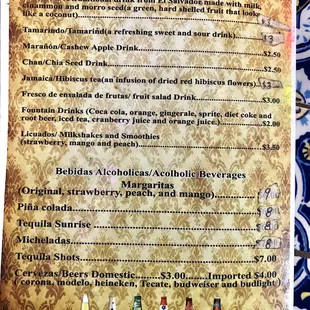 drink from El Salvador made with milk,
cinammon and morro seed(a green, hard shelled fruit that looks
like a coconut)
Tamarindo/Tamarind(a refreshing sweet and sour drink)...
Marañón/Cashew Apple Drink.................$2.50
Chan/Chia Seed Drink.................$2.50
Jamaica/Hibiscus tea(an infusion of dried red hibiscus flowers).
Fresco de ensalada de frutas/ fruit salad Drink.........$3.00
Fountain Drinks (Coca cola, orange, gingerale, sprite, diet coke and
root beer, iced tea, cranberry juice and orange juice.)........$2.00
Licuados/ Milkshakes and Smoothies
(strawberry, mango and peach)..............$3.50
Bebidas Alcoholicas/Acolholic Beverages
Margaritas
(Original, strawberry, peach, and mango)........... 9
Piña colada................. 8
Tequila Sunrise................. 8
Micheladas................. 8
Tequila Shots.................$7.00
Cervezas/Beers Domestic........$3.00........Imported $4.00
( corona, modelo, heineken, Tecate, budwiser and budlight)